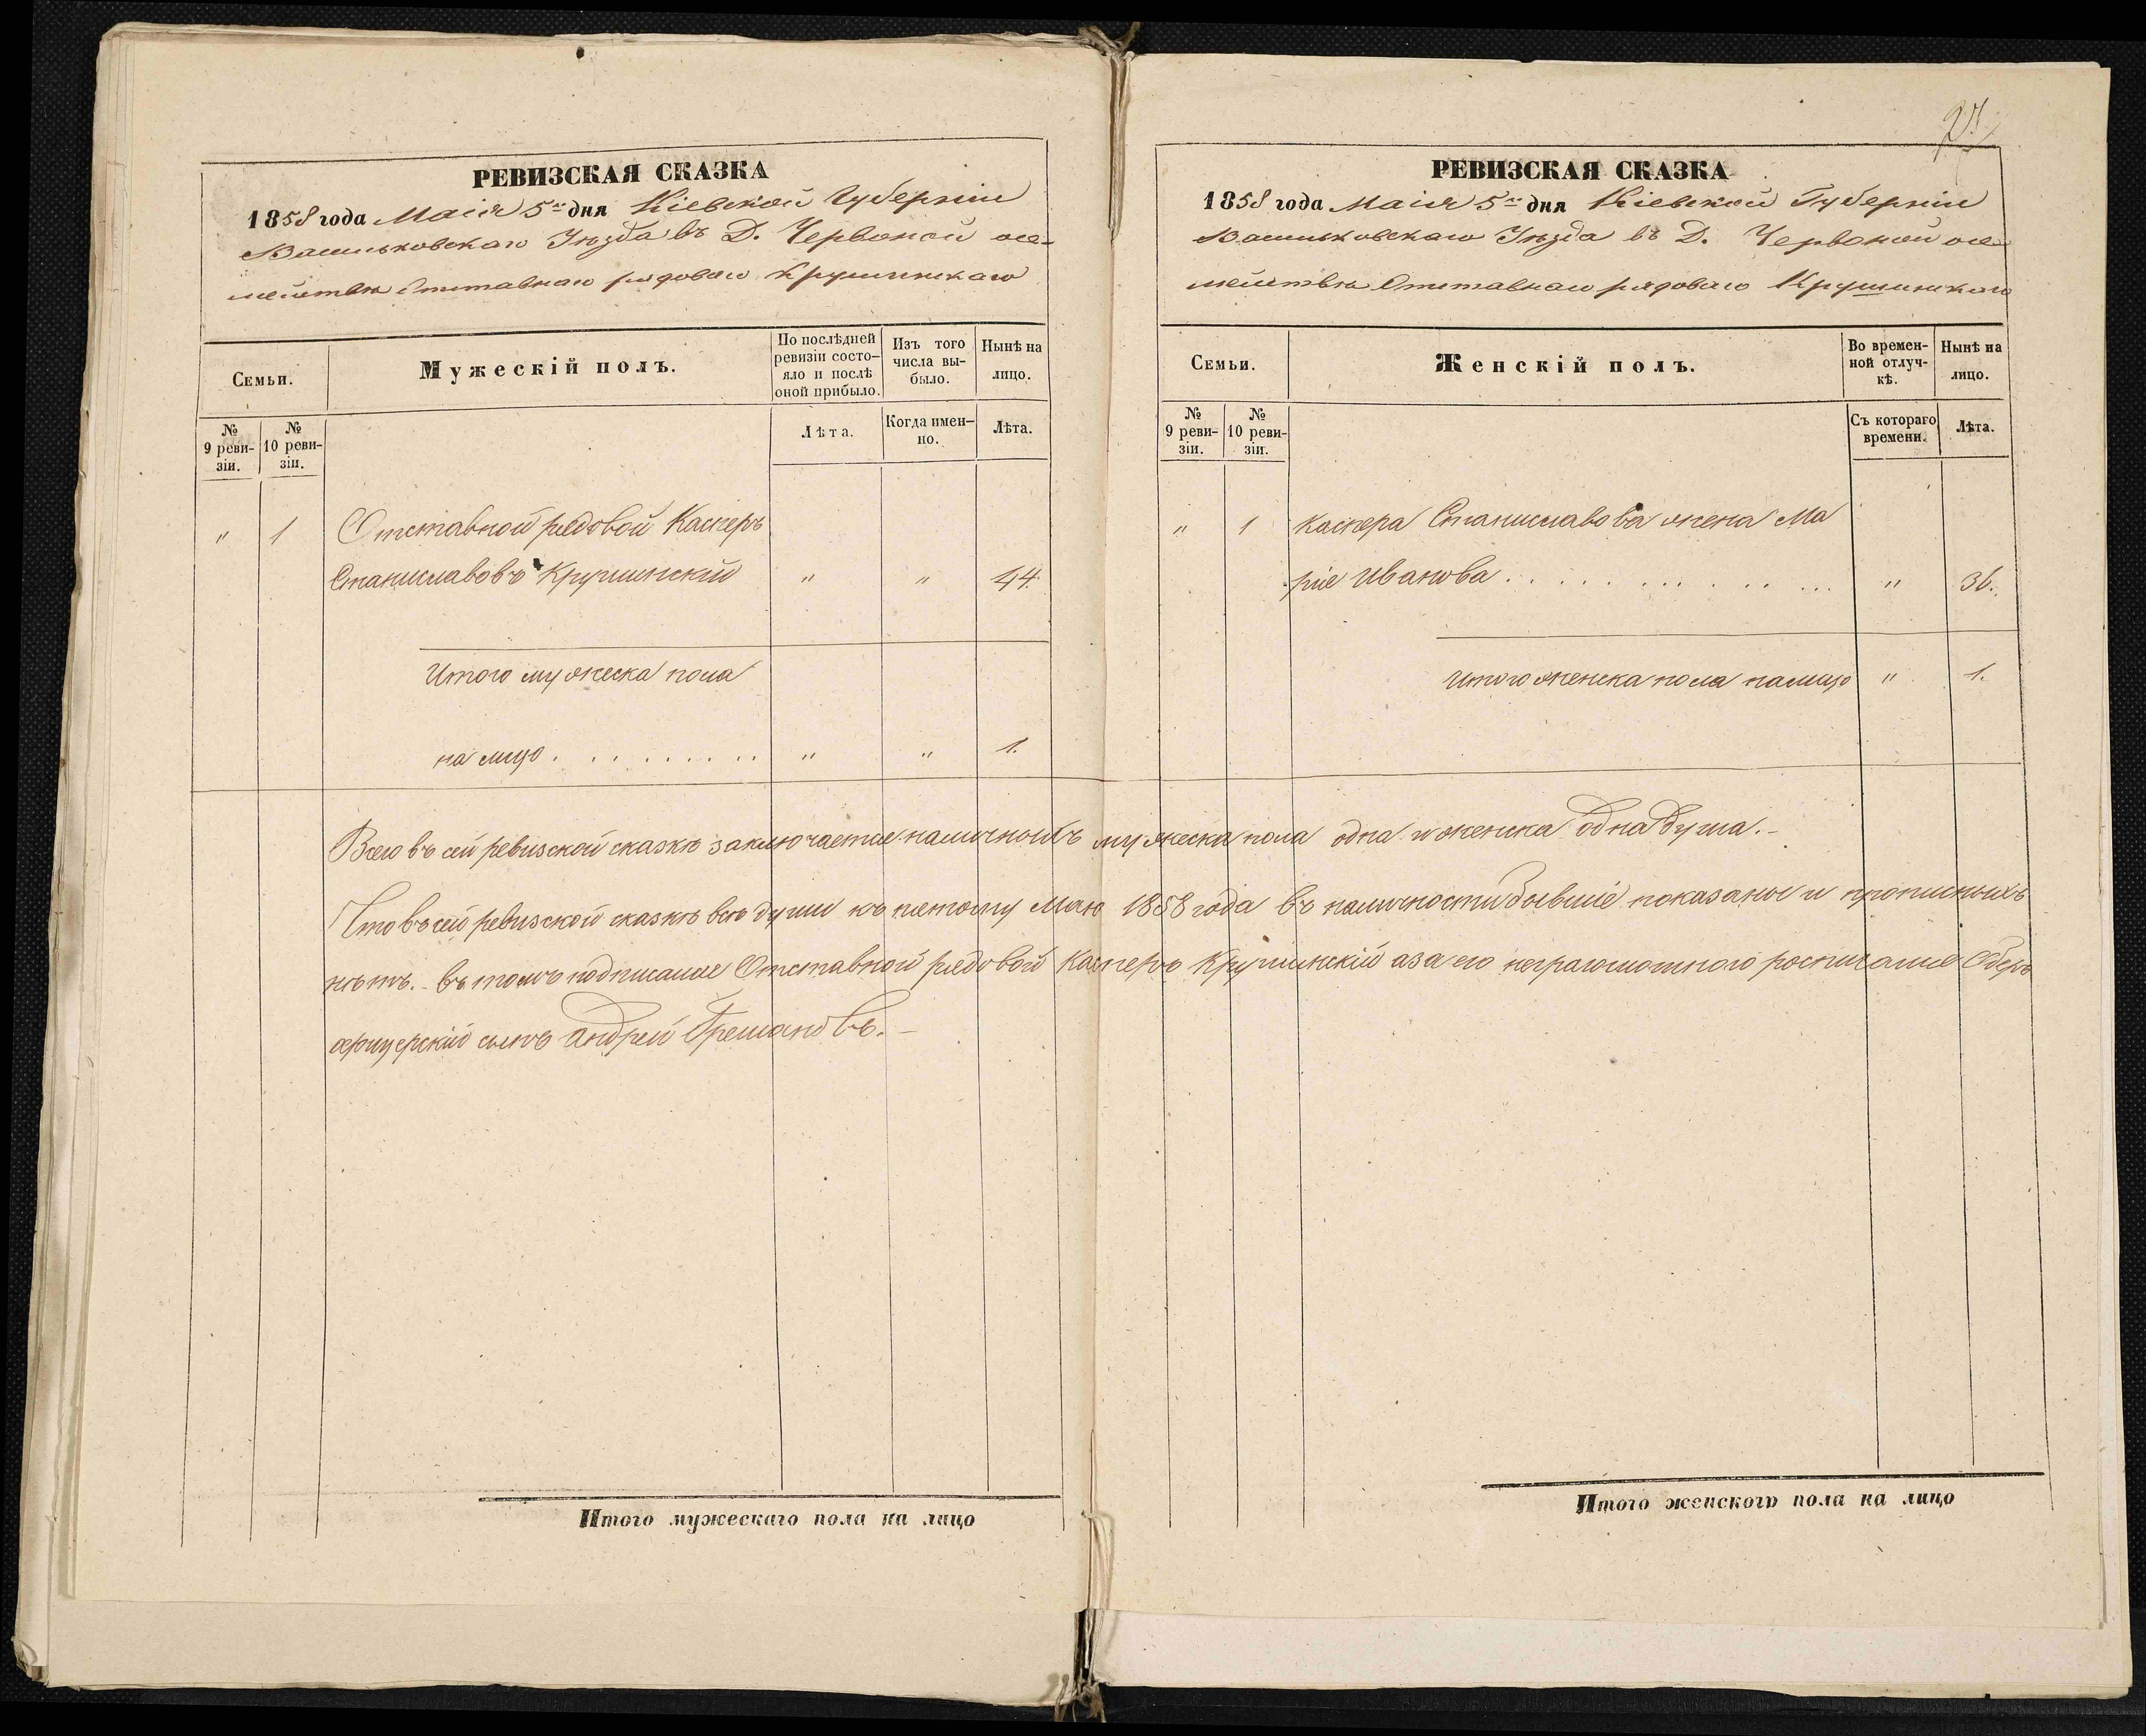 РЕВИЗСКАЯ СКАЗКА
1858 года Маія 5го дня Кіевской Губерніи
Васильковскаго Уѣзда въ Д. Червоной о се-
мействѣ Отставнаго рядоваго Крушинскаго
Семьи.
Мужескій полъ.
По послѣдней ревизіи состо-
яло и послѣ оной прибыло.
Изъ того числа вы-
было.
Нынѣ на лицо.
№ 9 реви-
зіи.
№ 10 реви-
зіи.
Лѣта.
Когда имен-
но.
Лѣта.
" 1 Отставной рядовой Касперъ
Станиславовъ Крушинскій " " 44.
Итого мужеска пола
на лицо . . . . . . . . " " 1.
27
РЕВИЗСКАЯ СКАЗКА
1858 года Маія 5го дня Кіевской Губерніи
Васильковскаго Уѣзда въ Д. Червоной о се-
мействѣ Отставнаго рядоваго Крушинскаго
Семьи.
Женскій полъ.
Во времен-
ной отлуч-
кѣ.
Нынѣ на лицо.
№ 9 реви-
зіи.
№ 10 реви-
зіи.
Съ котораго времени.
Лѣта.
" 1 Каспера Станиславова жена Ма
рія Иванова . . . . . . . . . . " 36.
Итого женска пола налицо " 1.
Всего въ сей ревизской сказкѣ заключается наличныхъ мужеска пола одна и женска одна душа.-
Что въ сей ревизской сказкѣ всѣ души къ пятому Маю 1858 года въ наличности бывшіе показаны и прописныхъ
нѣтъ.- въ томъ подписался Отставной рядовой Касперъ Крушинскій а за его неграмотного росписался Оберъ
офицерскій сынъ Андрей
Итого мужескаго пола на лицо
Итого женского пола на лицо